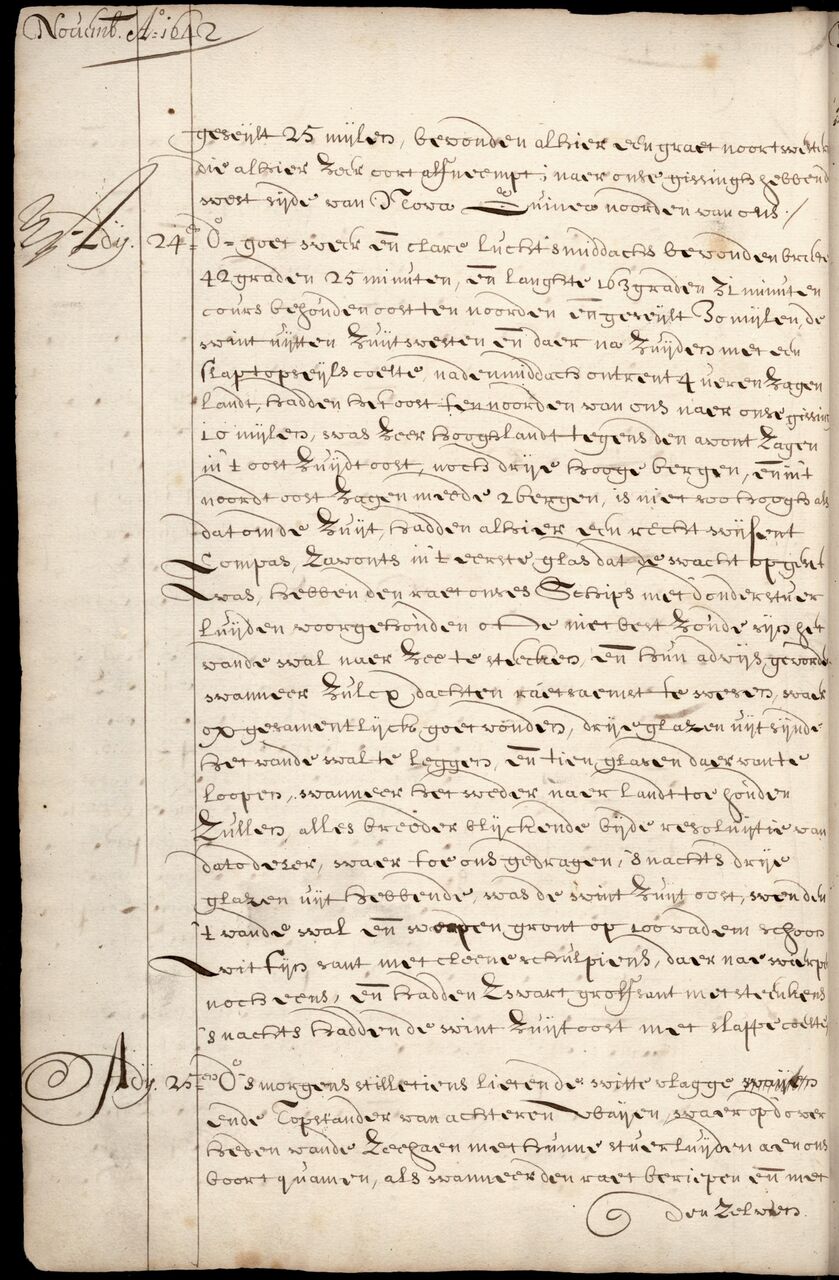 Novemb. Ao. 1642
geseijlt 25 mijlen, bevonden alhier een graet noortwest
die alhier zeer cort affneempt; naer onse gissingh hebbend
west sijde van Nova Guinea noorden van ons ./
Adij. 24en Do- goet weer en clare lucht smiddachs bevonden breete
42 graden 25 minuten, en langhte 163 graden 31 minuten
cours behouden oost ten noorden en geseijlt 30 mijlen, de
wint uijtten zuijtwesten en daer na zuijden met een
slap topseijls coelte, nade middach ontrent 4 ueren zagen
landt, hadden het oost ten noorden van ons naer onse gissing
10 mijlen, was zeer hoogh landt tegens den avont zagen
in't oost zuijdt oost, noch drije hooge bergen, en in't
noordt oost zagen meede 2 bergen, is niet soo hoogh als
dat om de zuijt, hadden alhier een recht wijsent
Compas, tavonts in't eerste glas dat de wacht opgeset
was, hebben den raet onses Schips met donderstuer
luijden voorgehouden oft de niet best zoude sijn het
vande wal naer zee te steecken, en hun advijs gevordert
wanneer zulcx dachten raetsaemst te wesen, waer
op gesamentlijck goetvonden, drije glazen uijt sijnde
het vande wal te leggen, en tien glasen daer van te
loopen, wanneer het weder naer landt toe houden
zullen, alles breeder blijckende bijde resolutije van
dato deser, waer toe ons gedragen, 's nachts drije
glazen uijt hebbende, was de wint zuijt oost, wenden
't vande wal en worpen gront op 100 vadem schoon
wit fijn sant met cleene schulpiens, daer nae wierpen
noch eens, en hadden zwart groff sant met steenkens
's nachts hadden de wint zuijtoost met slappe coelte
Adij. 25en Do 's morgens stilletiens lieten de witte vlagge waijen
ende Topstander van achteren wbaijen, waerop d'over
heden vande Zeehaen met hunne stuerluijden aen ons
boort quamen, als wanneer den raet beriepen en met
den zelven